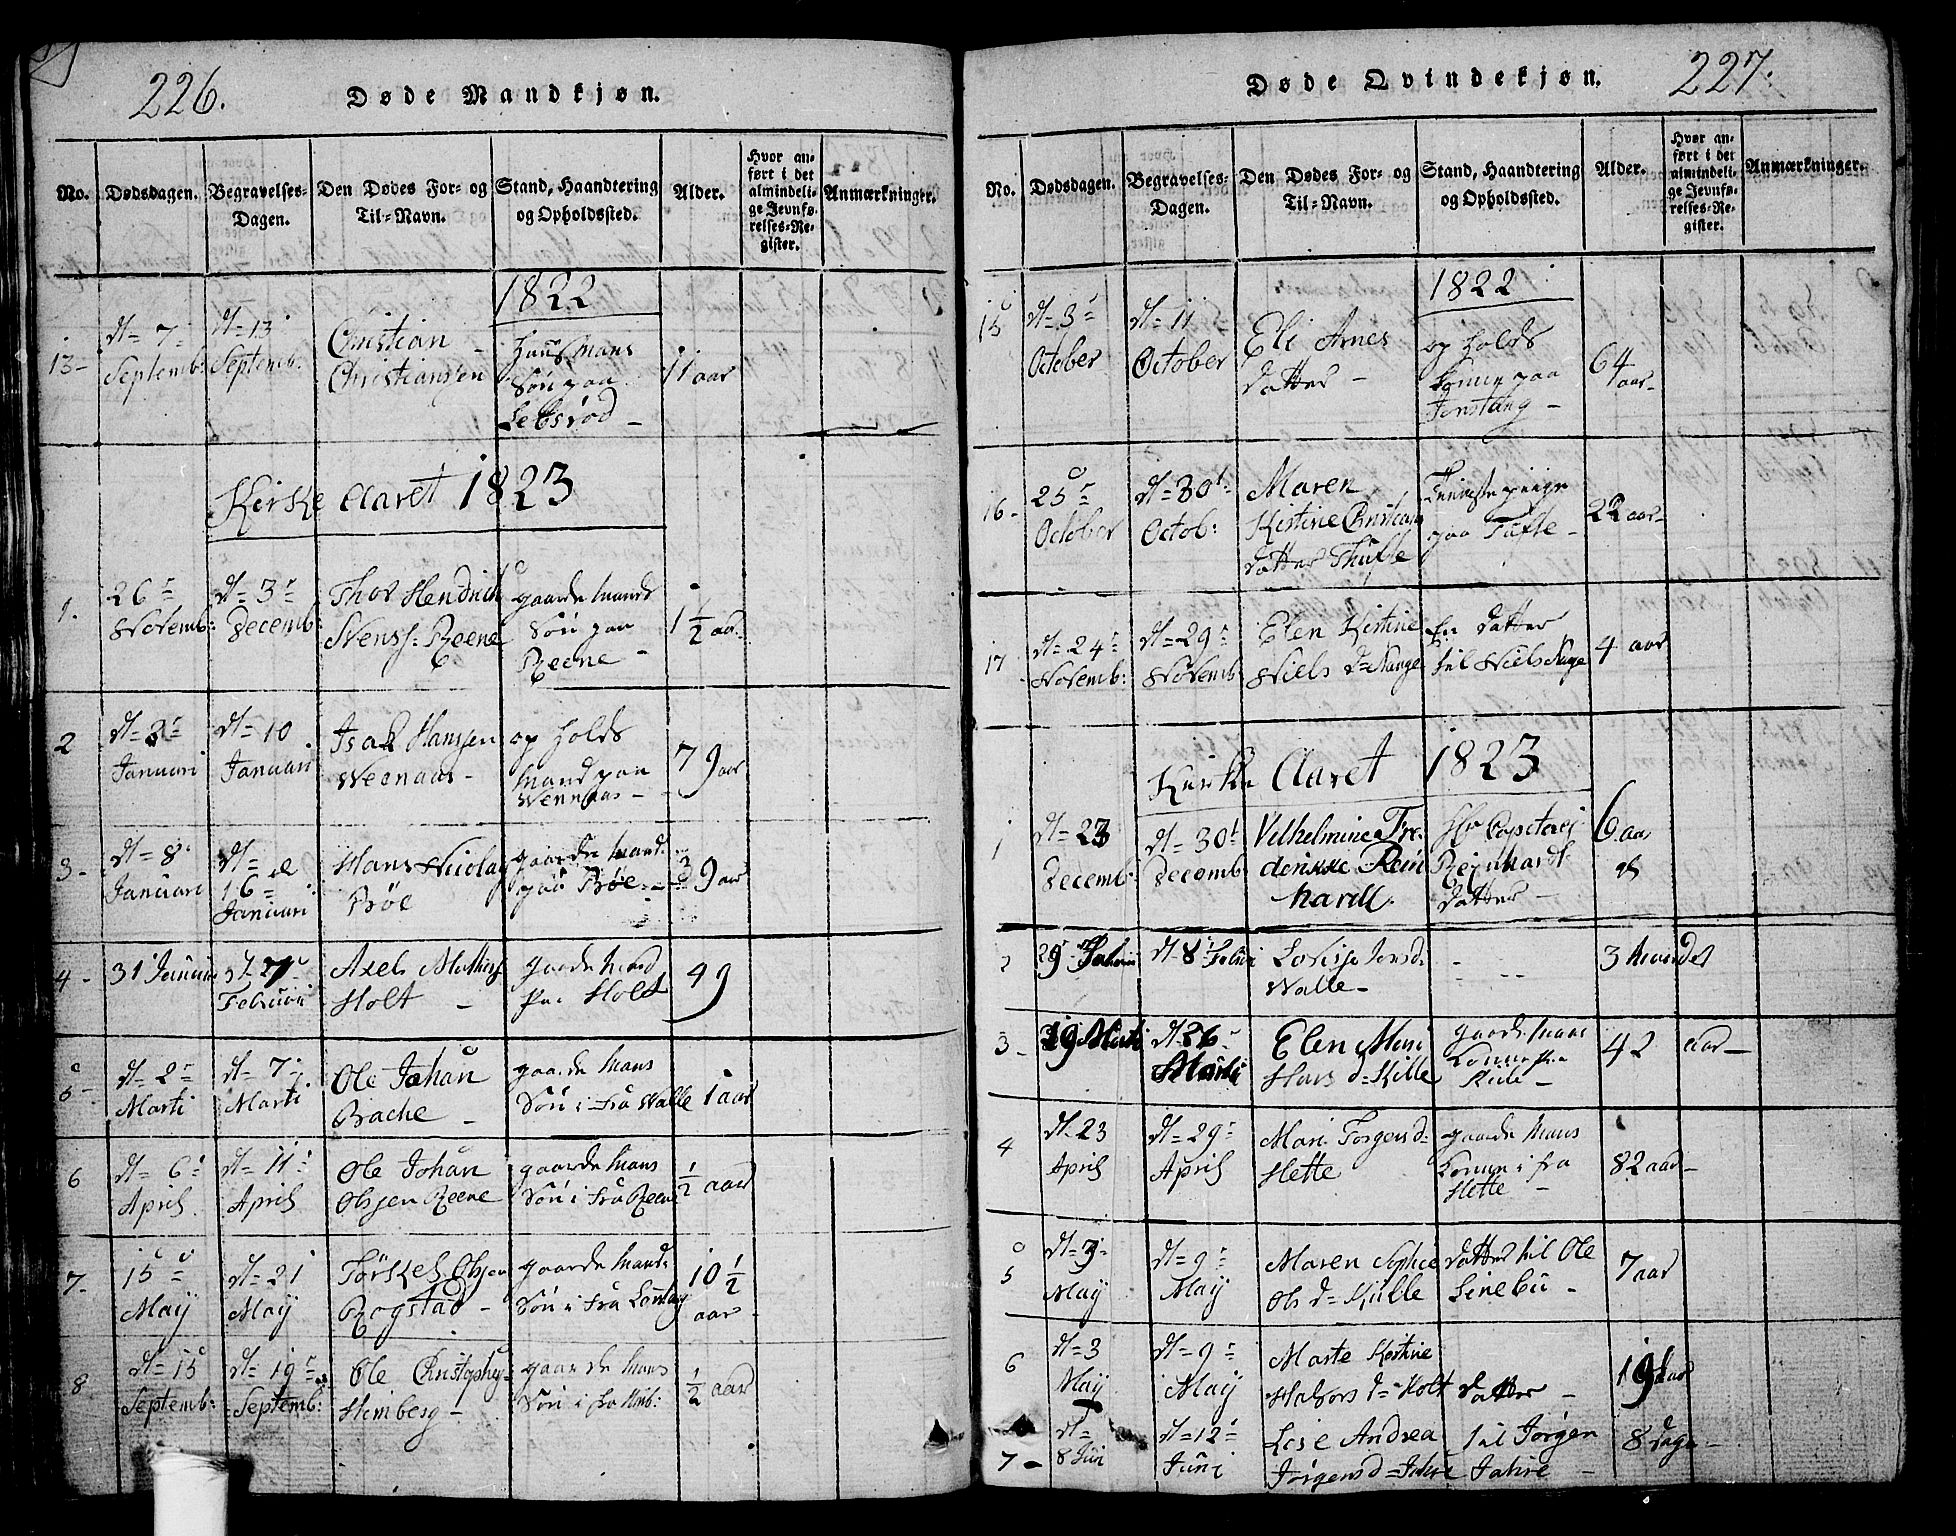 226.
Døde Mandkjøn.
No.
Dødsdagen.
Begravelses-
Dagen.
Den Dødes For- og
Til-Navn.
Stand, Haandtering
og Opholdssted.
Alder.
Hvor an-
ført i det
almindeli-
ge Jevnfø-
relses-Re-
gister.
Anmærkninger.
1822
13-
dt= 7
Septemb:
dt= 13
Septemb.
Christian
Christiansen
Huusmans
Søn paa
11 aar
Kirke Aaret 1823
1.
26
Novemb:
dt= 3
Decemb:
Thor Hendrich
Svens: Reene
gaardemands
Søn paa
Reene
1 1/2 aar
2
Januari
dt= 10
Januari
Isak Hanssen
Weenaas-
opholds
mand paa
Wennaas -
79 aar
3-
dt= 8
Januari
dt=
16=
Januari
Hans Nicolay
Bøe
gaardemand
paa Bøe
39 aar
4-
31 Januari
Februari
Axel Mathis
Holt -
gaardemand
paa Holt
49
5-
dt= 2
Marti
dt= 7
Marti
Ole Johan
Bache -
gaardemans
Søn i fra Walle
1 aar
6
dt= 6
April
dt= 11
April
Ole Johan
Olsen Reene
gaardemans
Søn i fra Reene
1/2 aar
7-
15
Maij
dt= 21
Maij
Tørkel Olsen
Rogstad -
gaardemand
Søn i fra
10 1/2
aar -
8
dt= 15
Septemb:
dt= 19
Septemb:
Ole Christophe
Himberg -
gaardemans
Søn i fra Himb:
1/2 aar
227.
Døde Qvindekjøn.
No.
Dødsdagen.
Begravelses-
Dagen.
Den Dødes For- og
Til-Navn.
Stand, Haandtering
og Opholdssted.
Alder.
Hvor an-
ført i det
almindeli-
ge Jevnfø-
relses-Re-
gister.
Anmærkninger.
1822
15
dt= 3
October
dt= 11
October
Eli Arnes
datter -
opholds
konne paa
Jonstang -
64
aar-
16-
25
October
dt= 30
Octob:
Maren
Kistine Christians
datter Thufte
Tienistepiige
paa Tufte -
22 aar-
17
dt= 24
Novemb:
dt= 29
Novemb:
Elen Kistine
Niels d= Nange
En datter
til Niels
4 aar
Kirke Aaret 1823
1
dt= 23
Decemb:
dt= 30
Decemb
Vilhelmine Fre-
derikke Rein
hardt.
Hr Capitei
Reinhardt
datter -
6 aar
2
29
dt= 8
Lovisse Jensd:
Walle-
3 Maander
3-
19 Marti
dt= 26
Marti
Elen Mari
Hans d= Kille
gaardemans
Konne fra
Kille -
42 aar-
4
dt- 23
April
dt= 29
April
Mari Torgersd:
Hette
gaardemans
Konne i fra
Hette -
82 aar-
5
dt= 3
Maij
dt= 9
Maij
Maren Sophie
Ols d= Kulle
datter til Ole
Linebu -
7 aar
6
dt= 3
Maij
dt= 9
Maij
Marte Kistine
Halvors d= Holt
datter -
7-
dt=
8 Juni
dt= 12
Juni
Lise Andrea
Jørgens d= Jahre
til Jørgen
Jahre -
8 dage-